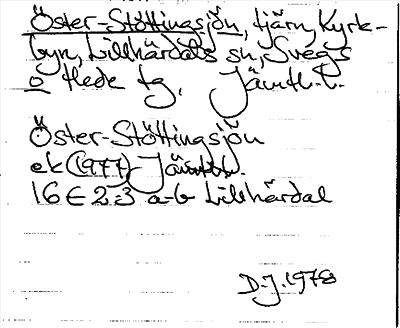 Öster-Stöttingsjön, tjärn, Kyrk-
byn, Lillhärdals sn, Svegs
o Hede tg, Jämtl. l.
Öster-Stöttingsjön
ek (1977) Jämtl.
16 E 2-3 a-b Lillhärdal
D.J. 1978